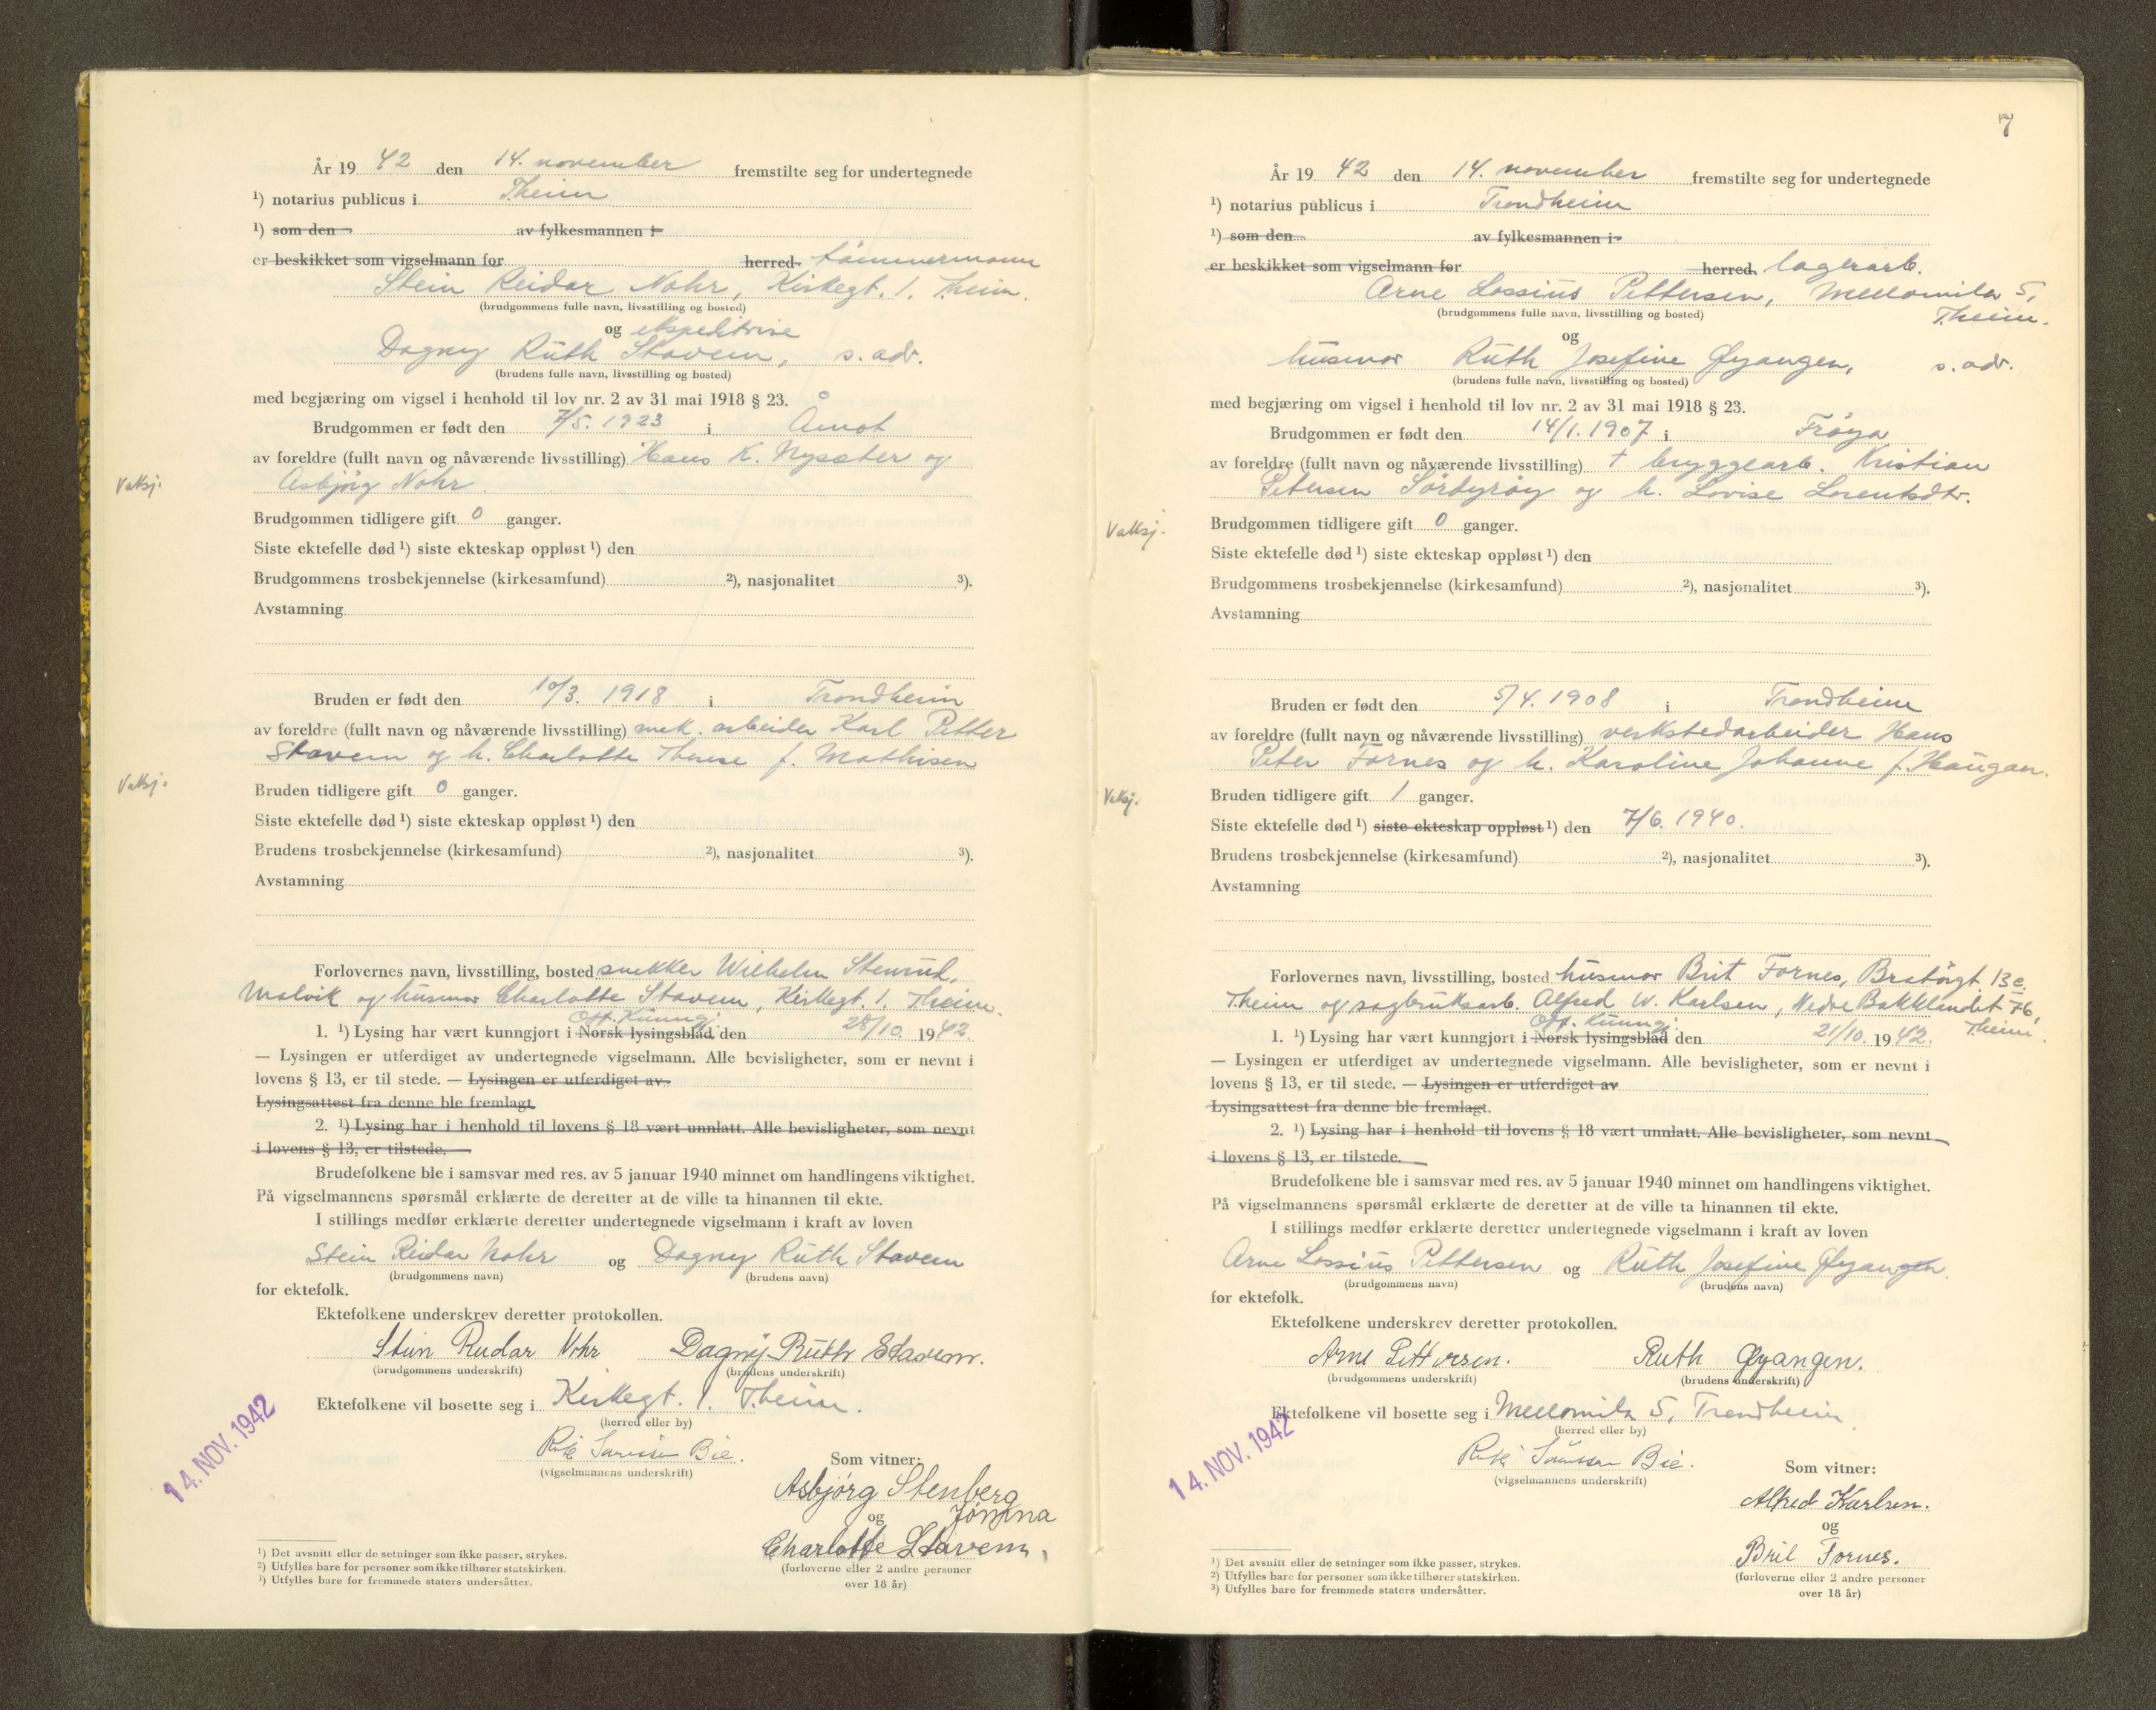 År 19 42 den 14. november fremstilte seg for undertegnede
¹) notarius publicus i T.heim
¹) som den av fylkesmannen i
er beskikket som vigselmann for herred. tømmermann
Stein Reidar Nohr, Kirkegt. 1. T.heim.
(brudgommens fulle navn, livsstilling og bosted)
og ekspeditrise
Dagny Ruth Stavem, s. adr.
(brudens fulle navn, livsstilling og bosted)
med begjæring om vigsel i henhold til lov nr. 2 av 31 mai 1918 § 23.
Brudgommen er født den 7/5. 1923 i Åmot
av foreldre (fullt navn og nåværende livsstilling) Hans K. Nysæter og
Asbjørg Nohr.
Vaksj.
Brudgommen tidligere gift 0 ganger.
Siste ektefelle død ¹) siste ekteskap oppløst ¹) den
Brudgommens trosbekjennelse (kirkesamfund) ²), nasjonalitet ³).
Avstamning
Bruden er født den 10/3. 1918 i Trondheim
av foreldre (fullt navn og nåværende livsstilling) mek. arbeider Karl Petter
Stavem og h. Charlotte Therese f. Mathisen
Vaksj.
Bruden tidligere gift 0 ganger.
Siste ektefelle død ¹) siste ekteskap oppløst ¹) den
Brudens trosbekjennelse (kirkesamfund) ²), nasjonalitet ³).
Avstamning
Forlovernes navn, livsstilling, bosted snekker Wilhelm Stenrud,
Malvik og husmor Charlotte Stavem, Kirkegt. 1. T.heim.
Off. Kunngj.
1. ¹) Lysing har vært kunngjort i Norsk lysingsblad den 28/10. 19 42.
— Lysingen er utferdiget av undertegnede vigselmann. Alle bevisligheter, som er nevnt i
lovens § 13, er til stede. — Lysingen er utferdiget av
Lysingsattest fra denne ble fremlagt.
2. ¹) Lysing har i henhold til lovens § 18 vært unnlatt. Alle bevisligheter, som nevnt
i lovens § 13, er tilstede.
Brudefolkene ble i samsvar med res. av 5 januar 1940 minnet om handlingens viktighet.
På vigselmannens spørsmål erklærte de deretter at de ville ta hinannen til ekte.
I stillings medfør erklærte deretter undertegnede vigselmann i kraft av loven
Stein Reidar Nohr og Dagny Ruth Stavem
(brudgommens navn) (brudens navn)
for ektefolk.
Ektefolkene underskrev deretter protokollen.
Stein Reidar Nohr Dagny Ruth Stavem.
(brudgommens underskrift) (brudens underskrift)
Ektefolkene vil bosette seg i Kirkegt. 1. T.heim.
(herred eller by)
14. NOV. 1942
Bie.
(vigselmannens underskrift)
Som vitner:
Asbjørg Stenberg
og
Charlotte Stavem.
(forloverne eller 2 andre personer
over 18 år)
¹) Det avsnitt eller de setninger som ikke passer, strykes.
²) Utfylles bare for personer som ikke tilhører statskirken.
³) Utfylles bare for fremmede staters undersåtter.
7
År 19 42 den 14. november fremstilte seg for undertegnede
¹) notarius publicus i Trondheim
¹) som den av fylkesmannen i
er beskikket som vigselmann for herred. lagerarb.
Arne Lossius Pettersen, Mellomila 5,
T.heim.
(brudgommens fulle navn, livsstilling og bosted)
og
husmor Ruth Josefine Øyangen, s. adr.
(brudens fulle navn, livsstilling og bosted)
med begjæring om vigsel i henhold til lov nr. 2 av 31 mai 1918 § 23.
Brudgommen er født den 14/1. 1907 i Frøya
av foreldre (fullt navn og nåværende livsstilling) † bryggearb. Kristian
Petersen Sørbyrøy og h. Lovise Lorentsdtr.
Vaksj.
Brudgommen tidligere gift 0 ganger.
Siste ektefelle død ¹) siste ekteskap oppløst ¹) den
Brudgommens trosbekjennelse (kirkesamfund) ²), nasjonalitet ³).
Avstamning
Bruden er født den 5/4. 1908 i Trondheim
av foreldre (fullt navn og nåværende livsstilling) verkstedarbeider Hans
Peter Fornes og h. Karoline Johanne f. Haugan.
Vaksj.
Bruden tidligere gift 1 ganger.
Siste ektefelle død ¹) siste ekteskap oppløst ¹) den 7/6. 1940.
Brudens trosbekjennelse (kirkesamfund) ²), nasjonalitet ³).
Avstamning
Forlovernes navn, livsstilling, bosted husmor Brit Fornes, Bratørgt. 13e.
T.heim og sagbruksarb. Alfred W. Karlsen, Nedre Bakklandet 76,
T.heim.
Off. Kunngj.
1. ¹) Lysing har vært kunngjort i Norsk lysingsblad den 21/10. 19 42.
— Lysingen er utferdiget av undertegnede vigselmann. Alle bevisligheter, som er nevnt i
lovens § 13, er til stede. — Lysingen er utferdiget av
Lysingsattest fra denne ble fremlagt.
2. ¹) Lysing har i henhold til lovens § 18 vært unnlatt. Alle bevisligheter, som nevnt
i lovens § 13, er tilstede.
Brudefolkene ble i samsvar med res. av 5 januar 1940 minnet om handlingens viktighet.
På vigselmannens spørsmål erklærte de deretter at de ville ta hinannen til ekte.
I stillings medfør erklærte deretter undertegnede vigselmann i kraft av loven
Arne Lossius Pettersen og Ruth Josefine Øyangen.
(brudgommens navn) (brudens navn)
for ektefolk.
Ektefolkene underskrev deretter protokollen.
Arne Pettersen. Ruth Øyangen.
(brudgommens underskrift) (brudens underskrift)
Ektefolkene vil bosette seg i Mellomila 5, Trondheim
(herred eller by)
14. NOV. 1942
Bie.
(vigselmannens underskrift)
Som vitner:
Alfred Karlsen.
og
Brit Fornes.
(forloverne eller 2 andre personer
over 18 år)
¹) Det avsnitt eller de setninger som ikke passer, strykes.
²) Utfylles bare for personer som ikke tilhører statskirken.
³) Utfylles bare for fremmede staters undersåtter.